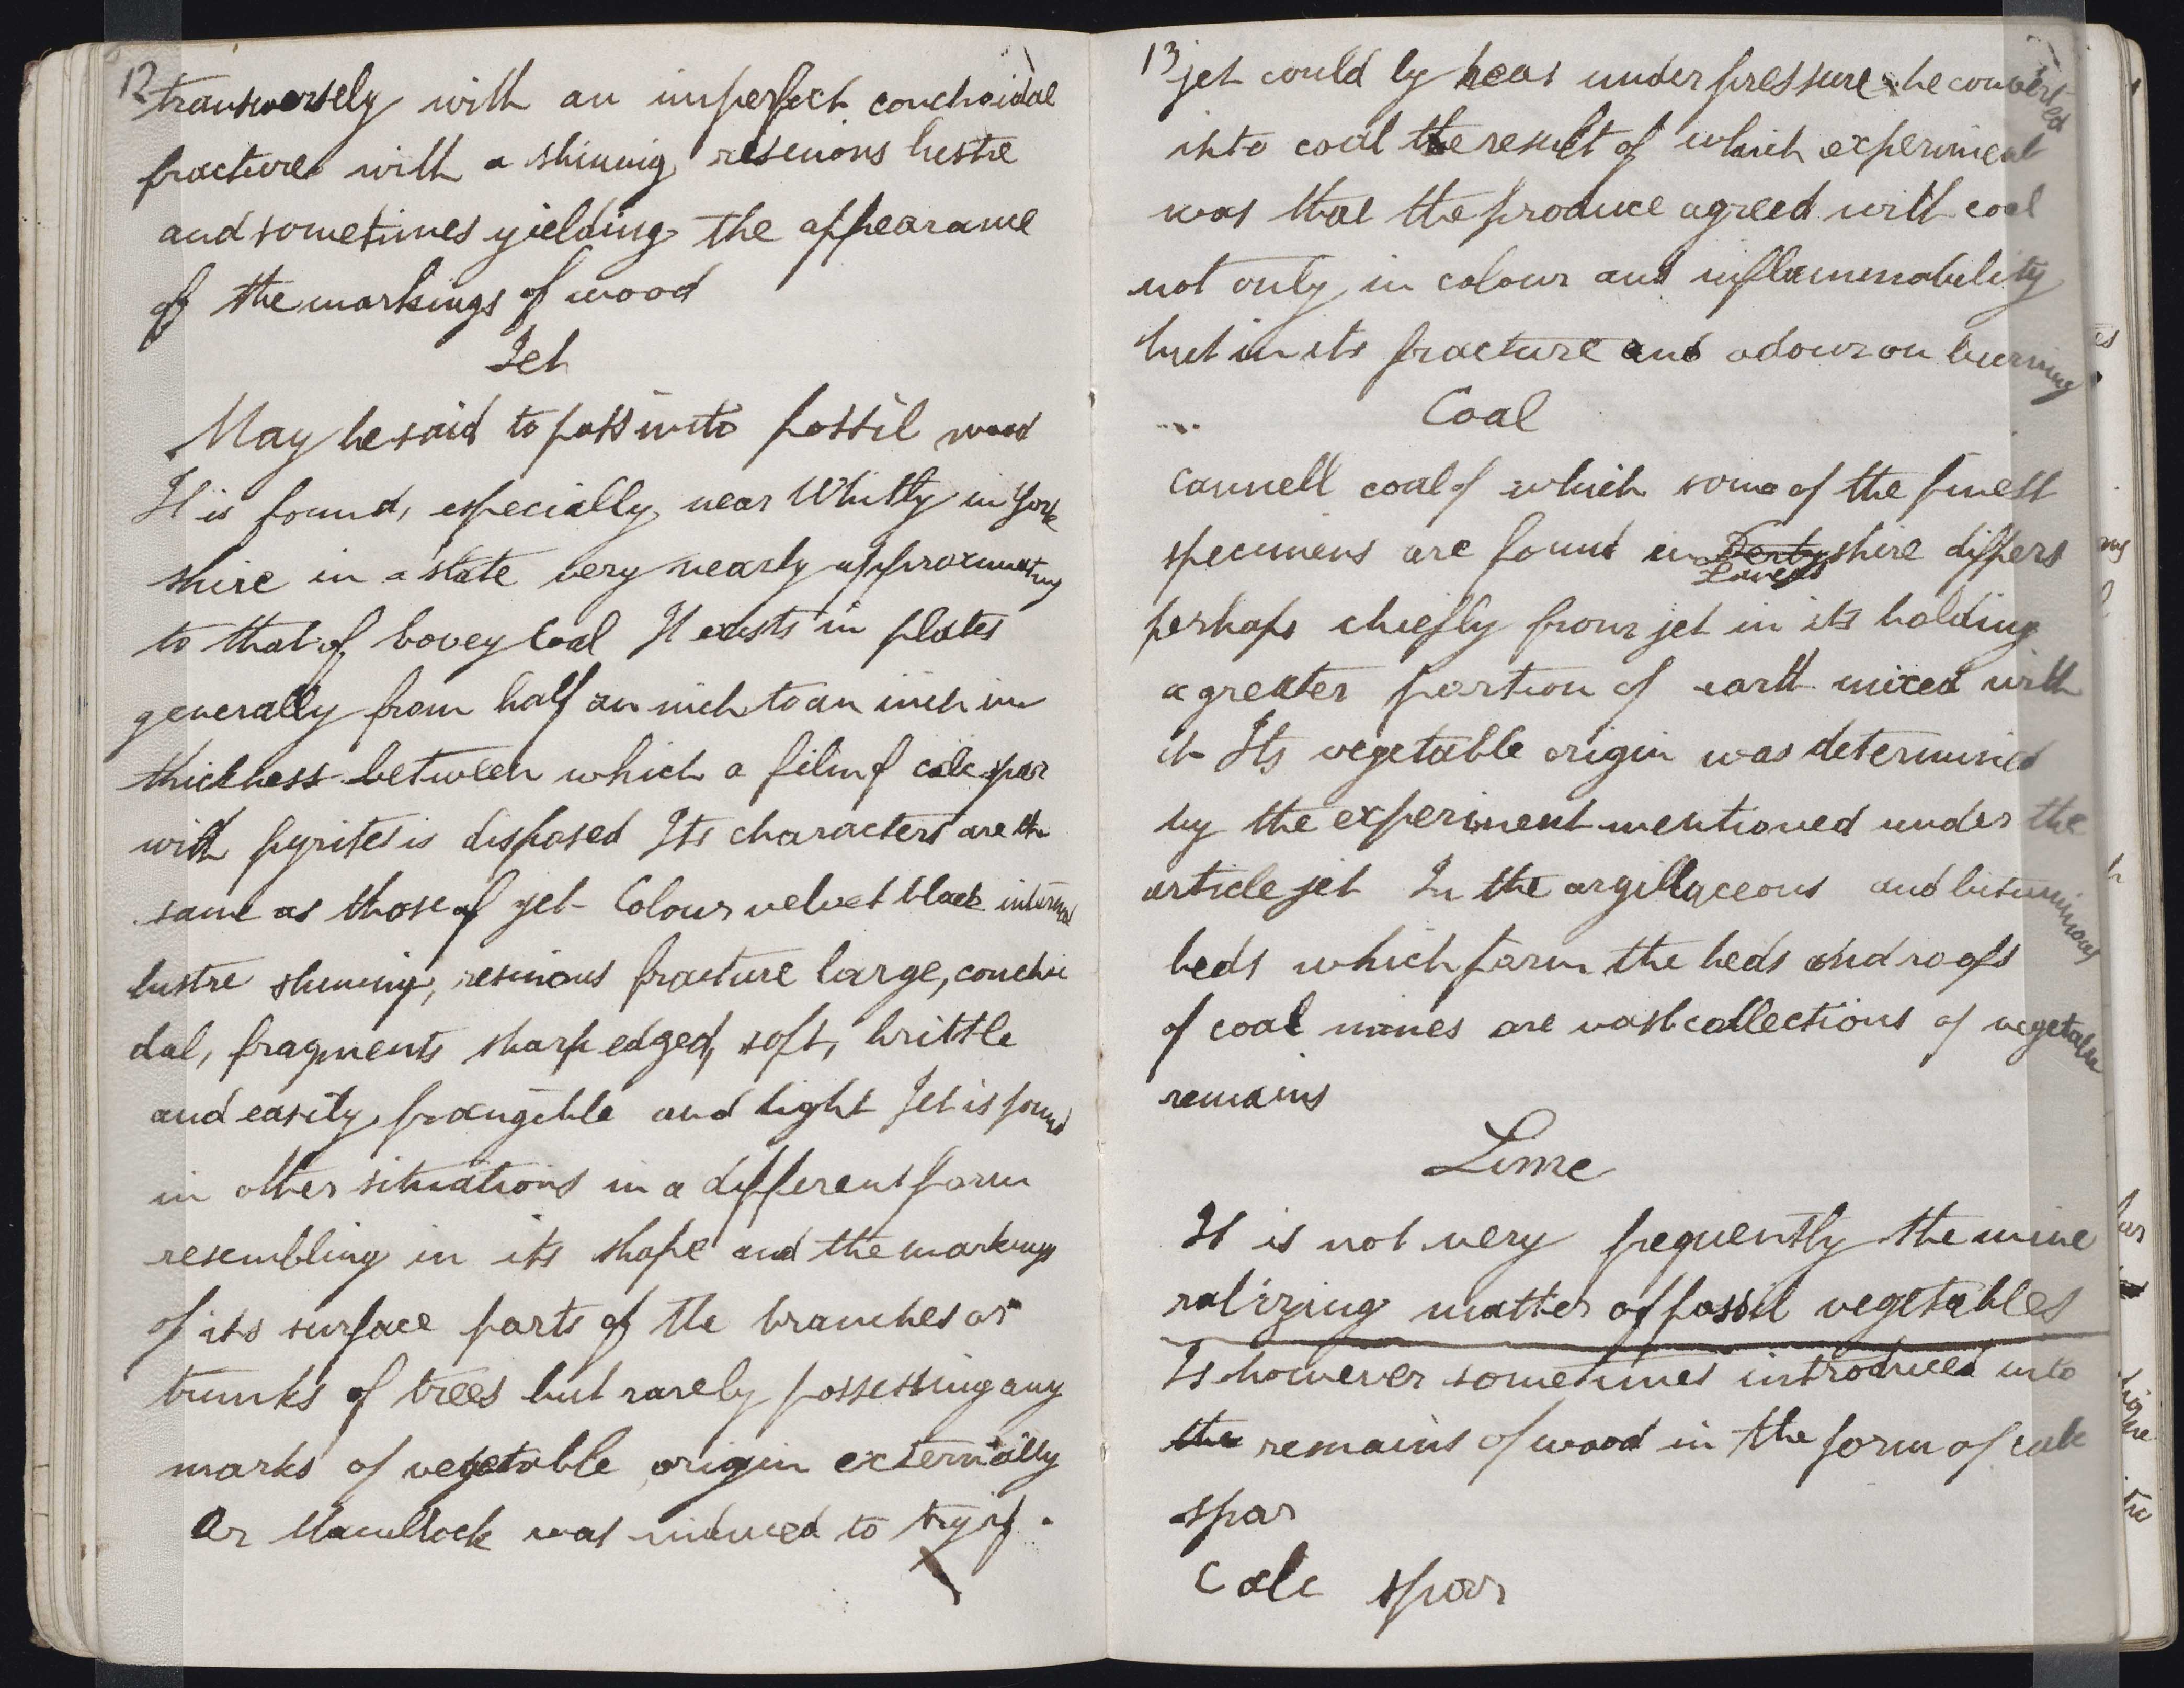 12
transversely with an imperfect conchoidal
fracture with a shining resinous lustre
and sometimes yielding the appearance
of the markings of wood
Jet
May be said to pass into fossil wood
It is found, especially near Whitby in York
shire in a state very nearly approximating
to that of bovey Coal It exists in plates
generally from half an inch to an inch in
thickness between which a film of calc spar
with pyrites is disposed Its characters are the
same as those of jet - Colour velvet black internal
lustre shining, resinous fracture large, conchoi
dal, fragments sharp edged, soft, brittle
and easily frangible and light Jet is found
in other situations in a different form
resembling in its shape and the markings
of its surface parts of the branches or
trunks of trees but rarely possessing any
marks of vegetable origin externally
Dr Macullock was induced to try if
13
jet could by heat under pressure be converted
into coal the result of which experiment
was that the produce agreed with coal
not only in colour and inflammability
but in its fracture and odour on burning
Coal
Cannell coal of which some of the finest
specimens are found in Derbyshire differs
perhaps chiefly from jet in its holding
a greater portion of earth mixed with
it Its vegetable origin was determined
by the experiment mentioned under the
article jet In the argillaceous and bituminous
beds which form the beds and roofs
of coal mines are vast collections of vegetable
remains
Lime
It is not very frequently the mine
ralizing matter of fossil vegetables
Is however sometimes introduced into
the remains of wood in the form of calc
spar
Calc spar